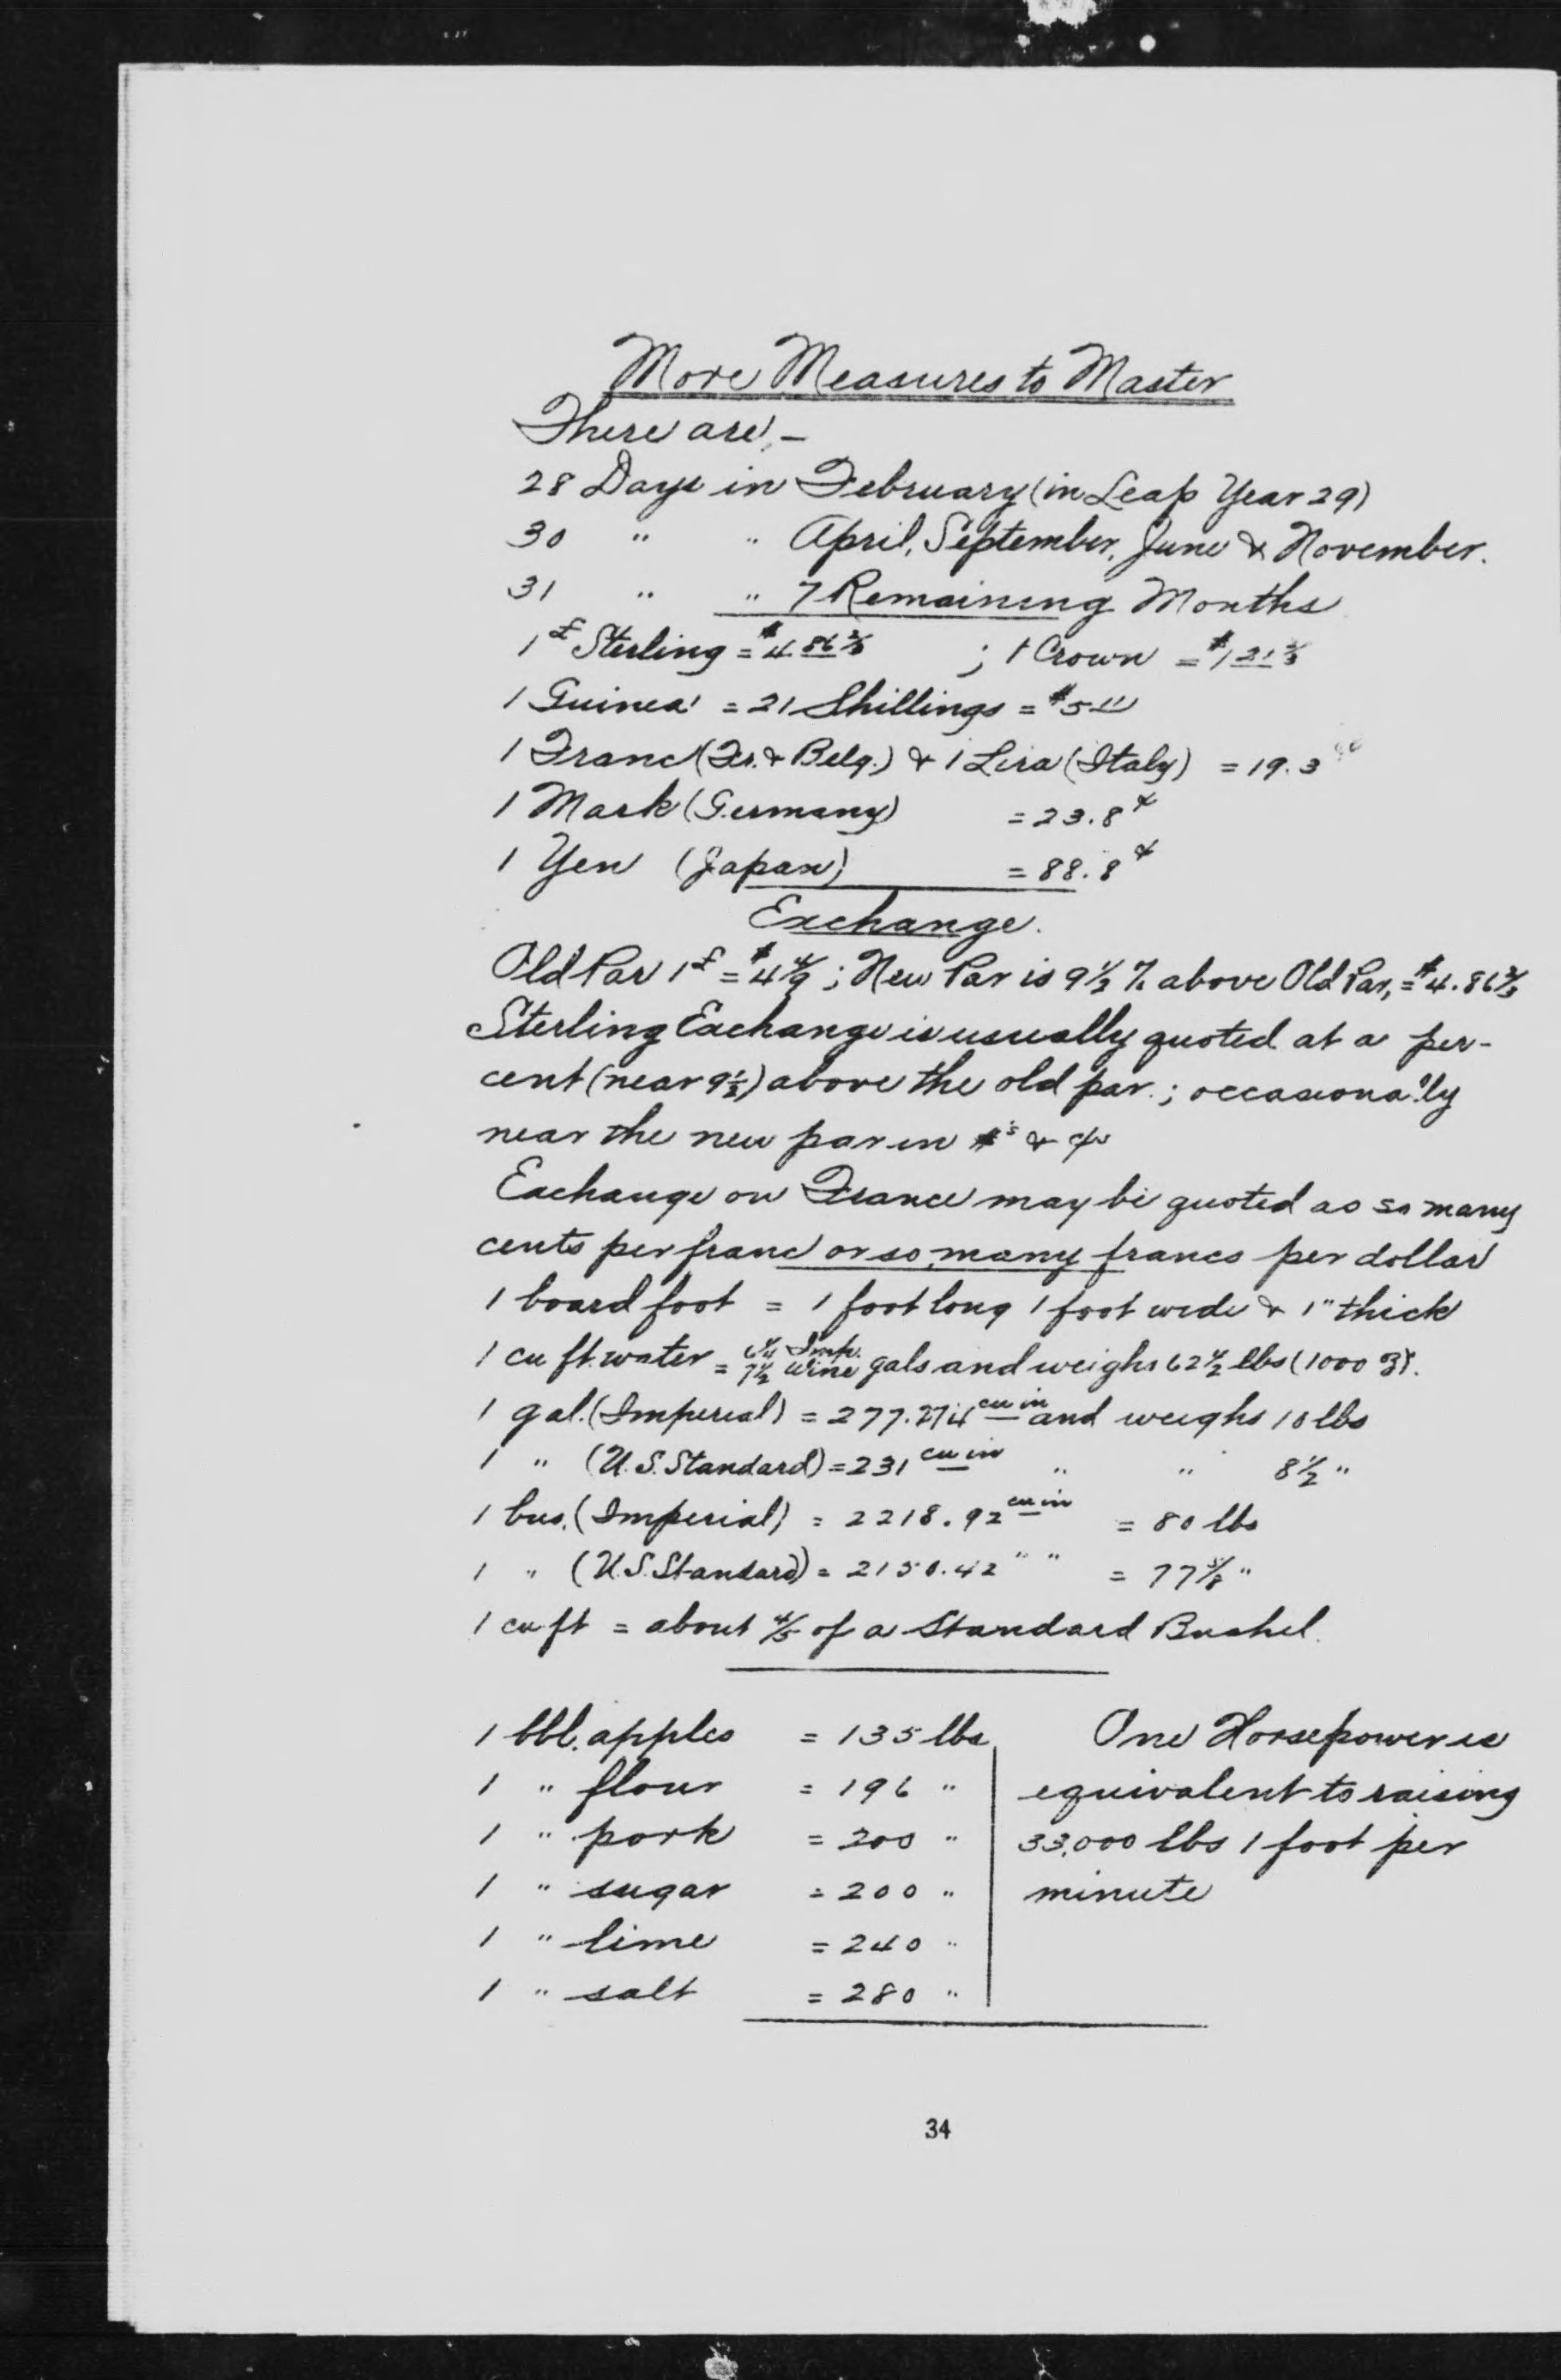 More Measures to Master
There are, –
28 Days in February (in Leap Year 29)
30 " " April, September, June & November.
31 " " 7 Remaining Months
1£ Sterling = $4.86⅔ ; 1 Crown = $1 21⅔
1 Guinea = 21 Shillings = $5 11
1 Franc (Fr. & Belg.) & 1 Lira (Italy) = 19.3
1 Mark (Germany) = 23.8¢
1 Yen (Japan) = 88.8¢
Exchange.
Old Par 1£ = $4 4/9 ; New Par is 9½ % above Old Par, = $4.86⅔
Sterling Exchange is usually quoted at a per-
cent (near 9½) above the old par.; occasionally
near the new par in $'s & ¢s
Exchange on France may be quoted as so many
cents per franc or so many francs per dollar
1 board foot = 1 foot long 1 foot wide & 1" thick
1 cu ft. water = 6¼ Imp.
= 7½ Wine gals and weighs 62½ lbs (1000 ℥).
1 gal. (Imperial) = 277.274 cu in and weighs 10 lbs
1 " (U.S. Standard) = 231 cu in " " 8½ "
1 bus. (Imperial) = 2218.92 cu in = 80 lbs
1 " (U.S. Standard) = 2150.42 " " = 77⅝ "
1 cu ft = about ⅘ of a Standard Bushel.
1 bbl. apples = 135 lbs
1 " flour = 196 "
1 " pork = 200 "
1 " sugar = 200 "
1 " lime = 240 "
1 " salt = 280 "
One Horsepower is
equivalent to raising
33,000 lbs 1 foot per
minute
34